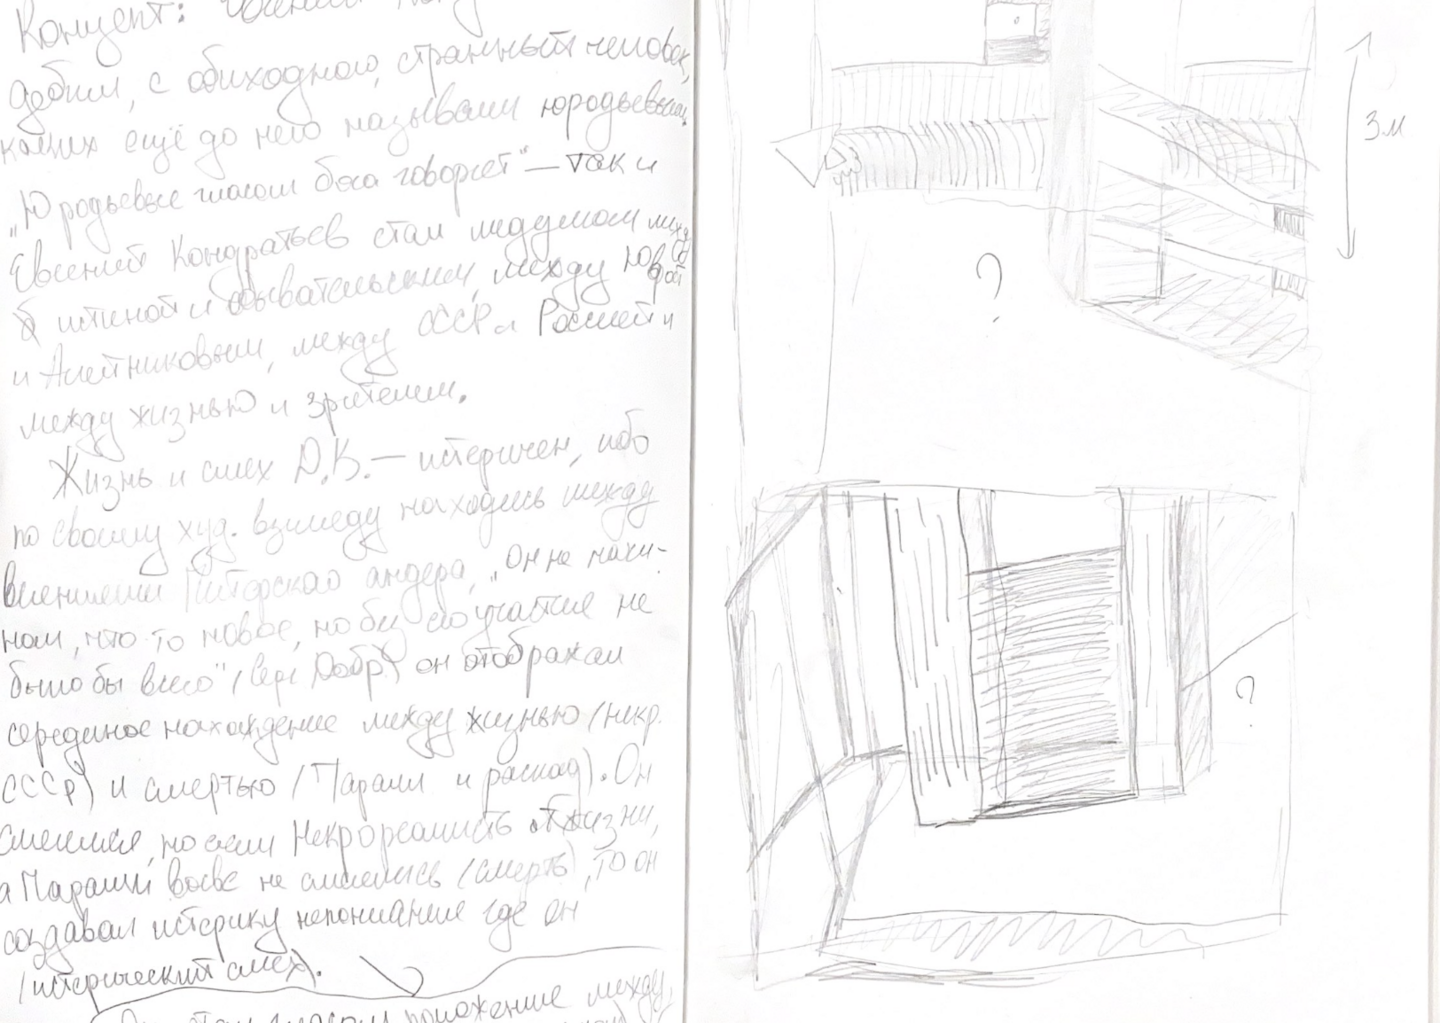 Концепт:
дебил, с обиходного, странный человек,
каких ещё до него называли юродьевыми.
„Юродьевые гласом бога говорят" — так и
Евгений Кондратьев стал медиумом между
истиной и обывательским, между Юфитом
и Алейниковым, между СССР и Россией и
между жизнью и зрителем.
Жизнь и смех Д.К. — истеричен, ибо
по своему худ. взгляду находясь между
питерского андера, „Он не начи-
нал, что то новое, но без его участия не
было бы всего" (Добр) он отображал
серединое нахождение между жизнью (некр.
СССР) и смертью ( и распад). Он
смеялся, но если Некрореалисты от жизни,
а вовсе не смеялись (смерть), то он
создавал истерику непонимание где он
(истерический смех).
стал гласом положение между
3м
?
?